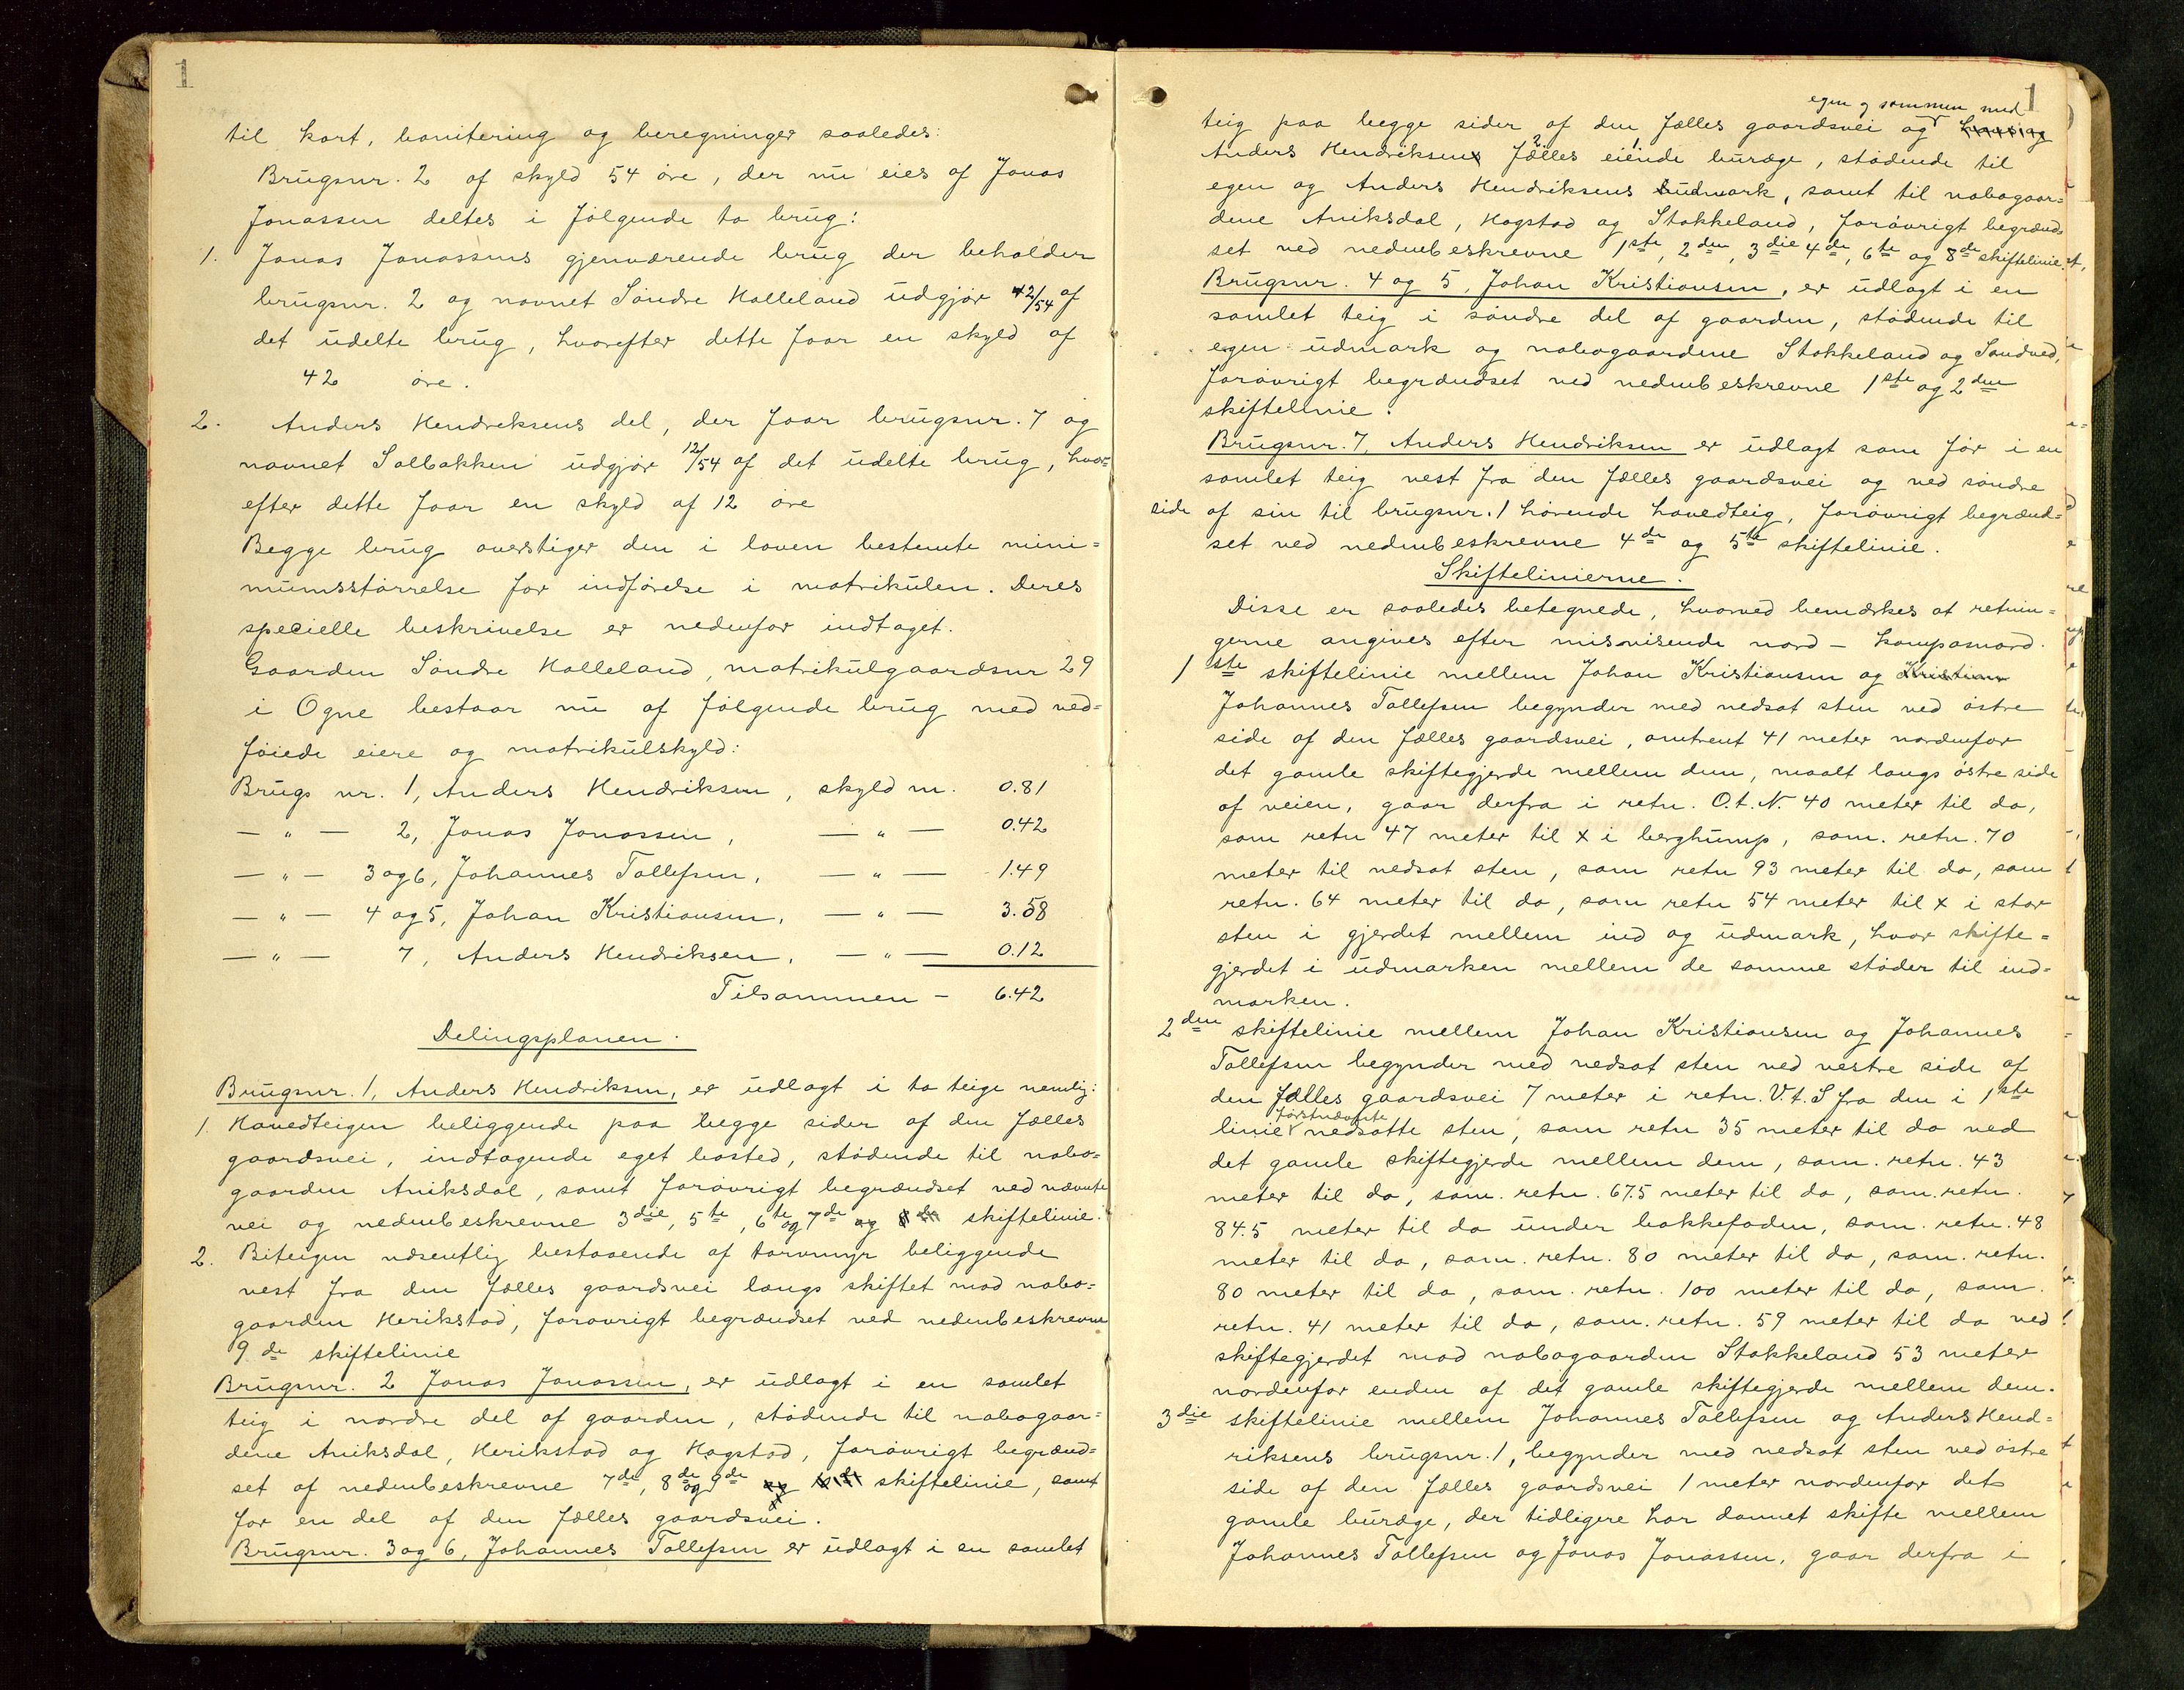 1
til kart, bonitering og beregninger saaledes:
Brugsnr. 2 af skyld 54 øre, der nu eies af Jonas
Jonassen deltes i følgende to brug:
1. Jonas Jonassens gjenværende brug der beholder
brugsnr. 2 og navnet Søndre Halleland udgjør 42/54 af
det udelte brug, hvorefter dette faar en skyld af
42 øre.
2. Anders Hendreksens del, der faar brugsnr. 7 og
navnet Solbakken udgjør 12/54 af det udelte brug, hvor=
efter dette faar en skyld af 12 øre
Begge brug overstiger den i loven bestemte mini=
mumsstørrelse for indførelse i matrikulen. Deres
specielle beskrivelse er nedenfor indtaget.
Gaarden Søndre Halleland, matrikulgaardsnr 29
i Ogne bestaar nu af følgende brug med ved=
føiede eiere og matrikulskyld:
Brugs nr. 1, Anders Hendriksen, skyld m. 0.81
— " — 2, Jonas Jonassen, — " — 0.42
— " — 3 og 6, Johannes Tollefsen, — " — 1.49
— " — 4 og 5, Johan Kristiansen, — " — 3.58
— " — 7, Anders Hendriksen, — " — 0.12
Tilsammen — 6.42
Delingsplanen.
Brugsnr. 1, Anders Hendriksen, er udlagt i to teige nemlig:
1. Hovedteigen beliggende paa begge sider af den fælles
gaardsvei, indtagende eget bosted, stødende til nabo=
gaarden Aniksdal, samt forøvrigt begrændset ved nævnte
vei og nedenbeskrevne 3die, 5te, 6te og 7de og 8de skiftelinie.
2. Biteigen væsentlig bestaaende af torvmyr beliggende
vest fra den fælles gaardsvei langs skiftet mod nabo=
gaarden Herikstad, forøvrigt begrændset ved nedenbeskrevne
9de skiftelinie
Brugsnr. 2 Jonas Jonassen, er udlagt i en samlet
teig i nordre del af gaarden, stødende til nabogaar=
dene Aniksdal, Herikstad og Hagstad, forøvrigt begrænd=
set af nedenbeskrevne 7de, 8de og 9de og skiftelinie, samt
for en del af den fælles gaardsvei.
Brugsnr. 3 og 6, Johannes Tollefsen er udlagt i en samlet
1
egen og sammen med
teig paa begge sider af den fælles gaardsvei og
Anders Hendriksens fælles eiende buræge, stødende til
egen og Anders Hendriksens udmark, samt til nabogaar=
dene Aniksdal, Hagstad og Stokkeland, forøvrigt begrænd=
set ved nedenbeskrevne 1ste, 2den, 3die 4de, 6te og 8de skiftelinie.
Brugsnr. 4 og 5, Johan Kristiansen, er udlagt i en
samlet teig i søndre del af gaarden, stødende til
egen udmark og nabogaardene Stokkeland og Sandved,
forøvrigt begrændset ved nedenbeskrevne 1ste og 2den
skiftelinie.
Brugsnr. 7, Anders Hendriksen er udlagt som før i en
samlet teig vest fra den fælles gaardsvei og ved søndre
side af sin til brugsnr. 1 hørende hovedteig, forøvrigt begrænd=
set ved nedenbeskrevne 4de og 5te skiftelinie.
Skiftelinierne.
Disse er saaledes betegnede, hvorved bemærkes at retnin=
gerne angives efter misvisende nord — kompasnord.
1ste skiftelinie mellem Johan Kristiansen og Kristian
Johannes Tollefsen begynder med nedsat sten ved østre
side af den fælles gaardsvei, omtrent 41 meter nordenfor
det gamle skiftegjerde mellem dem, maalt langs østre side
af veien, gaar derfra i retn. O.t.N. 40 meter til do,
sam retn 47 meter til x i berghump, sam. retn. 70
meter til nedsat sten, sam retn 93 meter til do, sam
retn. 64 meter til do, sam retn 54 meter til x i stor
sten i gjerdet mellem ind og udmark, hvor skifte=
gjerdet i udmarken mellem de samme støder til ind=
marken.
2den skiftelinie mellem Johan Kristiansen og Johannes
Tollefsen begynder med nedsat sten ved vestre side af
den fælles gaardsvei 7 meter i retn. V.t.S fra den i 1ste
førstnævnte
linie nedsatte sten, sam retn 35 meter til do ved
det gamle skiftegjerde mellem dem, sam. retn. 43
meter til do, sam. retn. 67.5 meter til do, sam. retn.
84.5 meter til do under bakkefoden, sam. retn. 48
meter til do, sam. retn. 80 meter til do, sam. retn.
80 meter til do, sam. retn. 100 meter til do, sam.
retn. 41 meter til do, sam. retn. 59 meter til do ved
skiftegjerdet mod nabogaarden Stokkeland 53 meter
nordenfor enden af det gamle skiftegjerde mellem dem.
3die skiftelinie mellem Johannes Tollefsen og Anders Hend=
riksens brugsnr. 1, begynder med nedsat sten ved østre
side af den fælles gaardsvei 1 meter nordenfor det
gamle buræge, der tidligere har dannet skifte mellem
Johannes Tollefsen og Jonas Jonassen, gaar derfra i